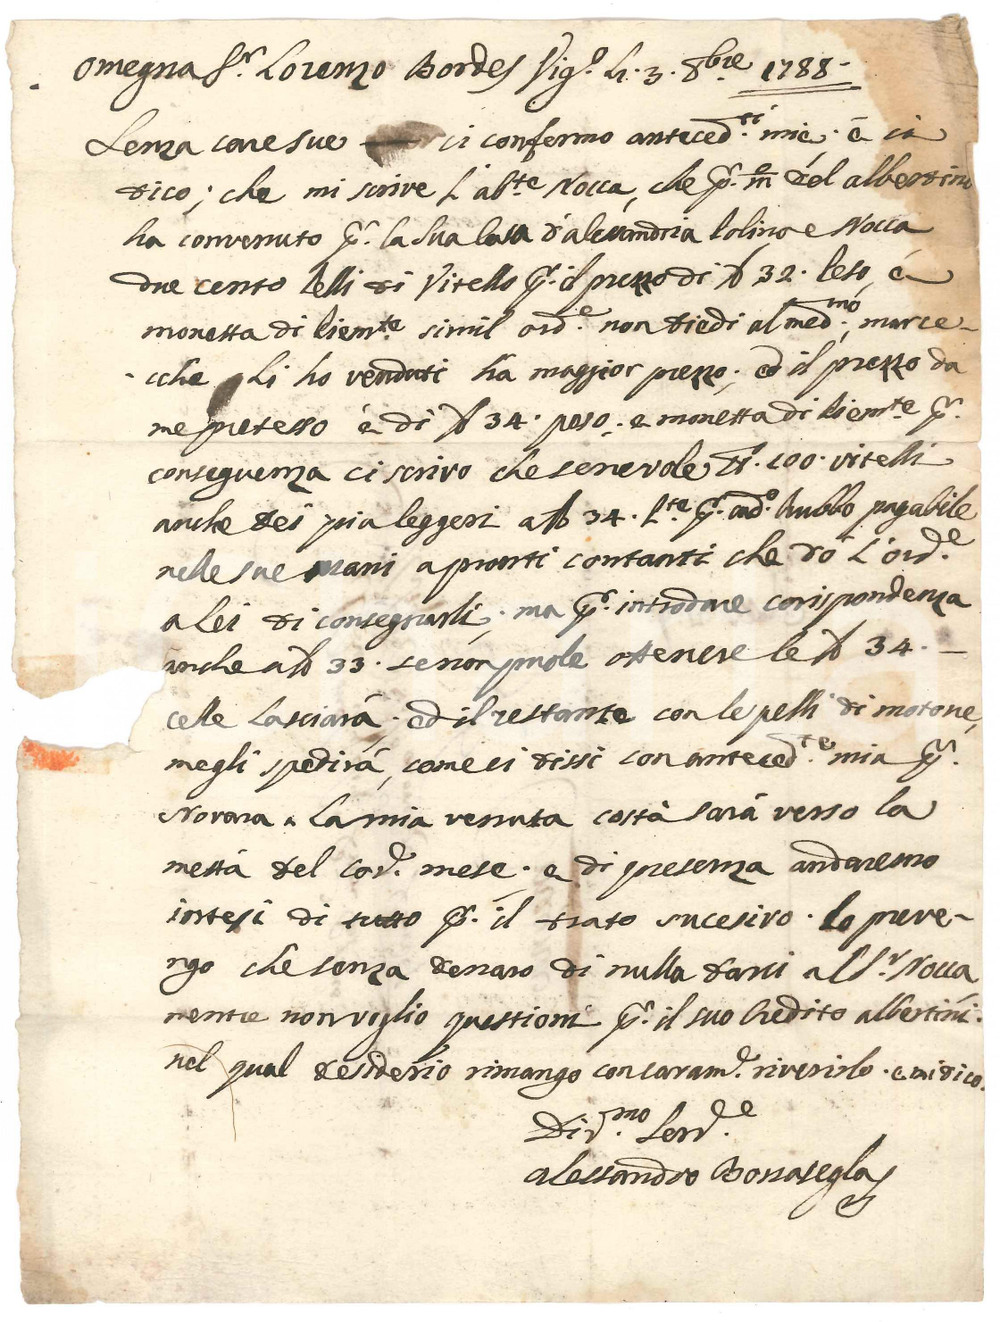 Omegna Sr. Lorenzo Bordes Vig.o Li. 3. 8bre 1788-
Senza care sue ci confermo anteced.ti mie. e ci
dico; che mi scrive L'ab.te Nocca, che p. m del albertino
ha convenuto p. la sua Casa d'alessandria Polino e Nocca
due cento Pelli di Vitello p. il prezzo di £ 32. Peso, é
monetta di Piem.te simil ord.e non diedi al med.mo, mer ce-
-cche Li ho venduti ha maggior prezzo; ed il prezzo da
me preteso é di £ 34. peso. e monetta di Piem.te p.
conseguenza ci scrivo che se ne vole di. 100. vitelli
anche dei pia leggeri a £ 34. P.te p. cad.o Rubbo pagabile
nelle sue mani a pronti contanti che do L'ord.e
a Lei di consegnarli, ma p. introdure corispondenza
anche a £ 33. se non puole ottenere le £ 34. -
celle Lasciará. ed il restante con le pelli di motone,
me gli spedirá, come ci dissi con anteced.te mia p.
Novara. La mia venuta costà sará verso la
mettá del cor.e mese. e di presenza anderemo
intesi di tutto p. il trato sucesivo. lo preve-
ngo che senza denaro di nulla darci al Sr. Nocca
mentre non voglio questioni p. il suo Credito albertini.
nel qual desiderio rimango con caram.e riverirlo. e mi dico.
Div.mo Serv.e
Alessandro Bonasegla